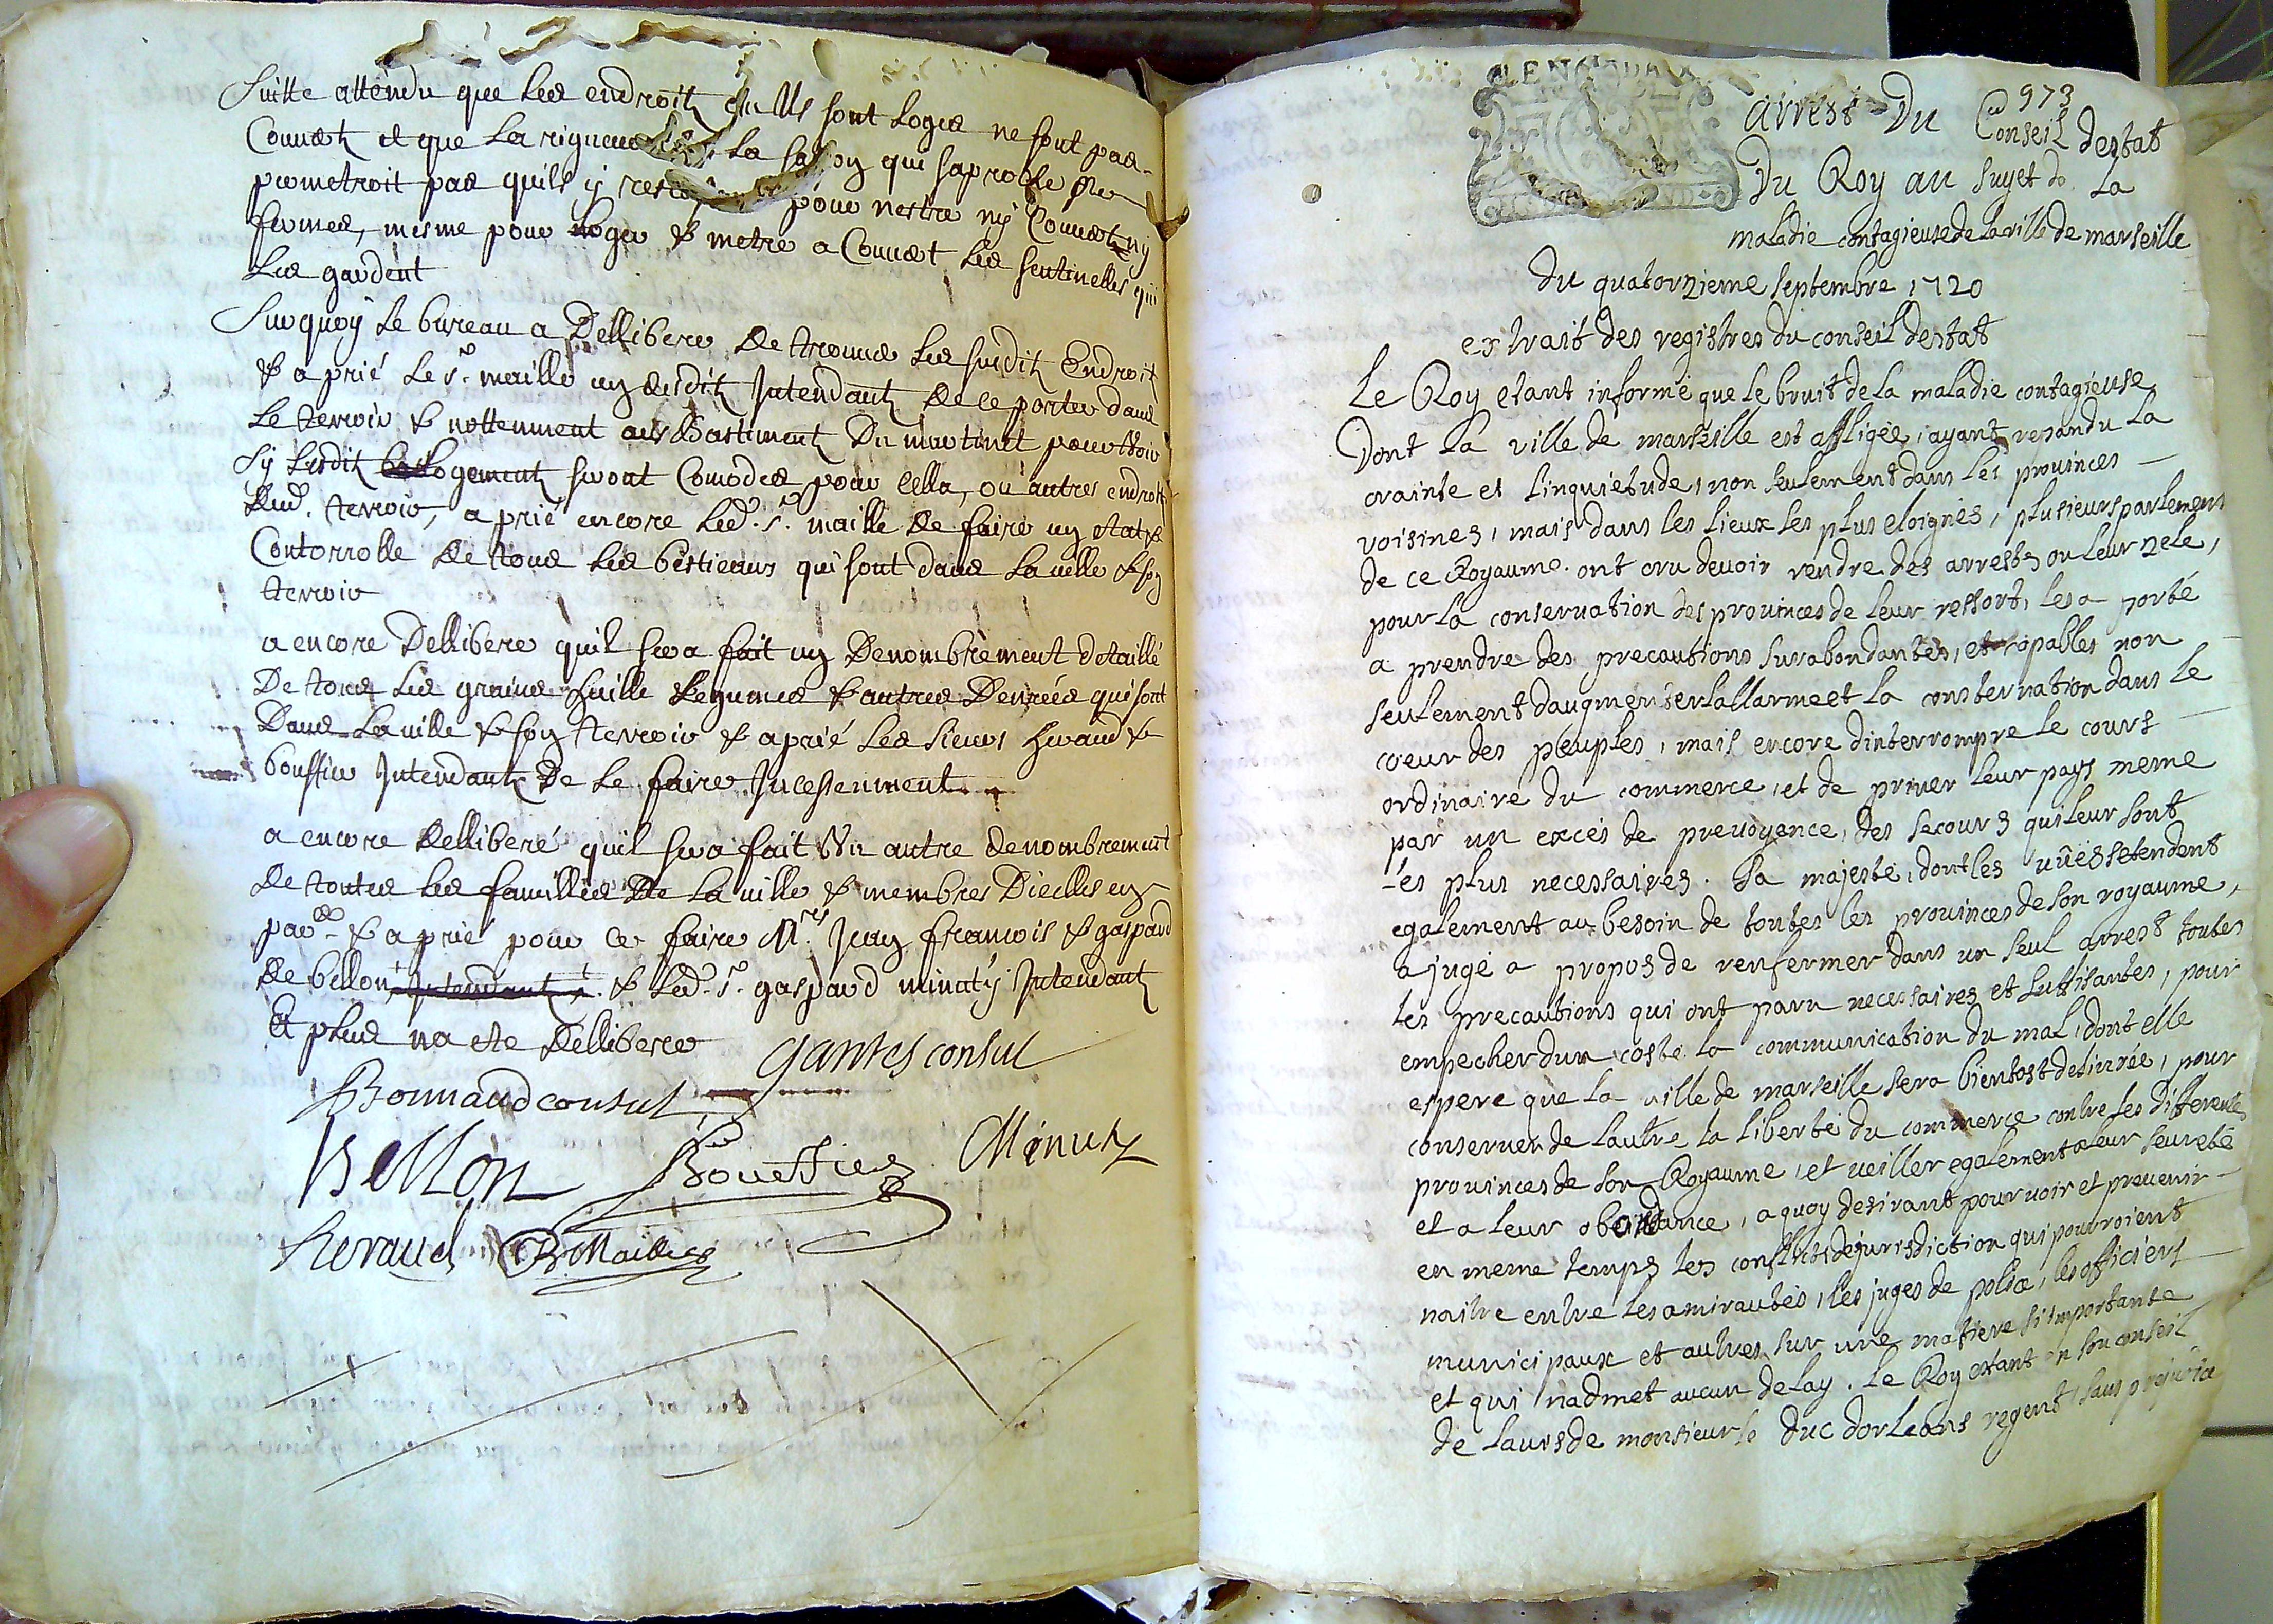 Suitte attendu que les endroitz ou Ils sont logés ne sont pas
Couvertz et que La rigueur La saison qui saproche ne
permetroit pas quils y pour nestre ny Couvertz ny
fermés, mesme pour loger & metre a Couvert les sentinelles qui
Les gardent
Sur quoy le bureau a Delliberé De trouver Les susditz Endroitz
& a prié Le sr. maille un desditz Intendantz de ce porter dans
Le terroir & nottenment aux Bastimentz Du martinet pour voir
Sy Lesditz logementz seront Comodes pour cella, ou autres endroitz
Dud. terroir, a prié encore Led. sr. maille De faire un etat &
Contorrolle De tous Les bestieaux qui sont dans La ville & son
terroir
a encore Delliberé quil sera fait un Denombrement detaillé
De tous Les grains huille Legumes & autres Denrées qui sont
Dans La ville & son terroir & a prié Les sieurs heraud &
bouffier Intendantz De Le faire Incessenment
a encore Delliberé quil sera fait Un autre denombrement
De toutes Les familles De La ville & membres Dicelles en
parer & a prié pour ce faire Mres Jean francois & gaspard
De bellon Intendantz & Led. sr. gaspard minuty Intendantz
Et plus na ete Delliberé
gantes consul
Bonnaud consul
Bellon Bouffier Minuty
heraud B. Maille
973
arrest Du Conseil destat
Du Roy au sujet de La
maladie contagieuse de la ville de marseille
du quatorzieme septembre 1720
extrait des registres du conseil destat
Le Roy etant informé que le bruit de la maladie contagieuse
Dont la ville de marseille est affligée, ayant repandu la
crainte et linquietude, non seulement dans les provinces
voisines, mais dans les lieux les plus eloignés, plusieurs parlemens
de ce Royaume ont cru devoir rendre des arrests ou leur zele,
pour la conservation des provinces de leur ressort, les a porté
a prendre des precautions surabondantes, et capables non
seulement daugmenter lallarme et la consternation dans le
coeur des peuples, mais encore dinterrompre le cours
ordinaire du commerce, et de priver leur pays meme
par un excés de prevoyance, des secours qui leur sont
les plus necessaires. Sa majesté, dont les vûes setendent
egalement au besoin de toutes les provinces de son royaume,
a jugé a propos de renfermer dans un seul arrest toutes
les precautions qui ont paru necessaires et suffisantes, pour
empecher dun costé la communication du mal, dont elle
espere que la ville de marseille sera bientost delivrée, pour
conserver de lautre la liberté du commerce contre les differentes
provinces de son Royaume, et veiller egalement a leur seureté
et a leur obeissance, a quoy desirant pourvoir et prevenir
en meme temps les conflicts de jurisdiction qui pourroient
naitre entre les amirautés, les juges de police, les officiers
municipaux et autres, sur une matiere si importante
et qui nadmet aucun delay. Le Roy estant en son conseil
de lavis de monsieur le duc dorleans regent, sans prejudice